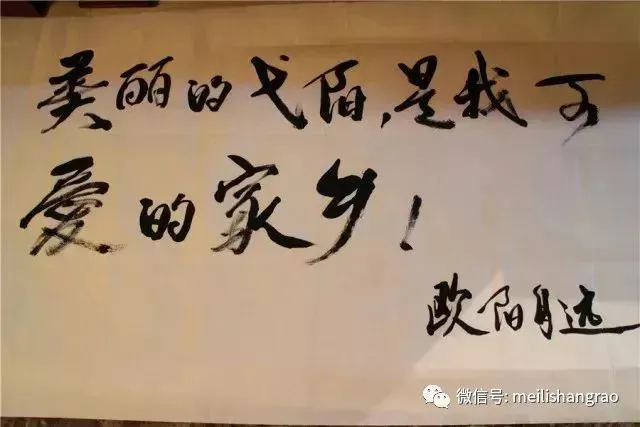 美丽的弋阳,是我可
爱的家乡!
欧阳自远
微信号: meilishangrao